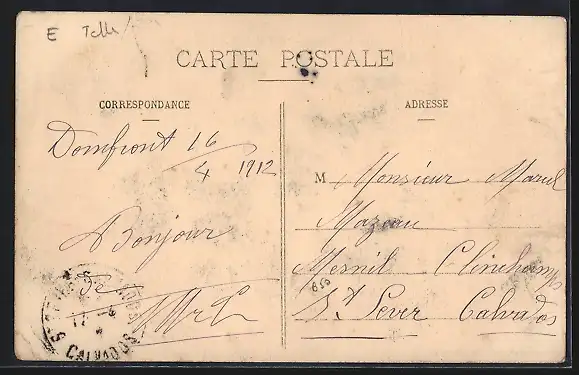 E
CARTE POSTALE
CORRESPONDANCE
Domfront 16
4 1912
Bonjour
ADRESSE
M Monsieur Marcel
Mazeau
Mesnil Clinchamps
St Sever Calvados
CALVADOS